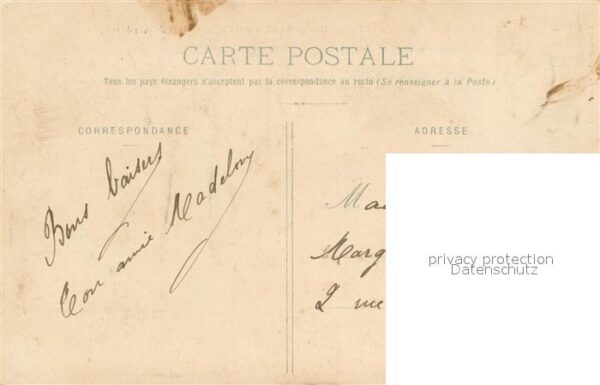 CARTE POSTALE
Tous les pays étrangers n'acceptent pas la correspondance au recto (Se renseigner à la Poste)
CORRESPONDANCE
Bons baisers
Ton amie Madelon
ADRESSE
Mad
Marg
2 rue
privacy protection
Datenschutz